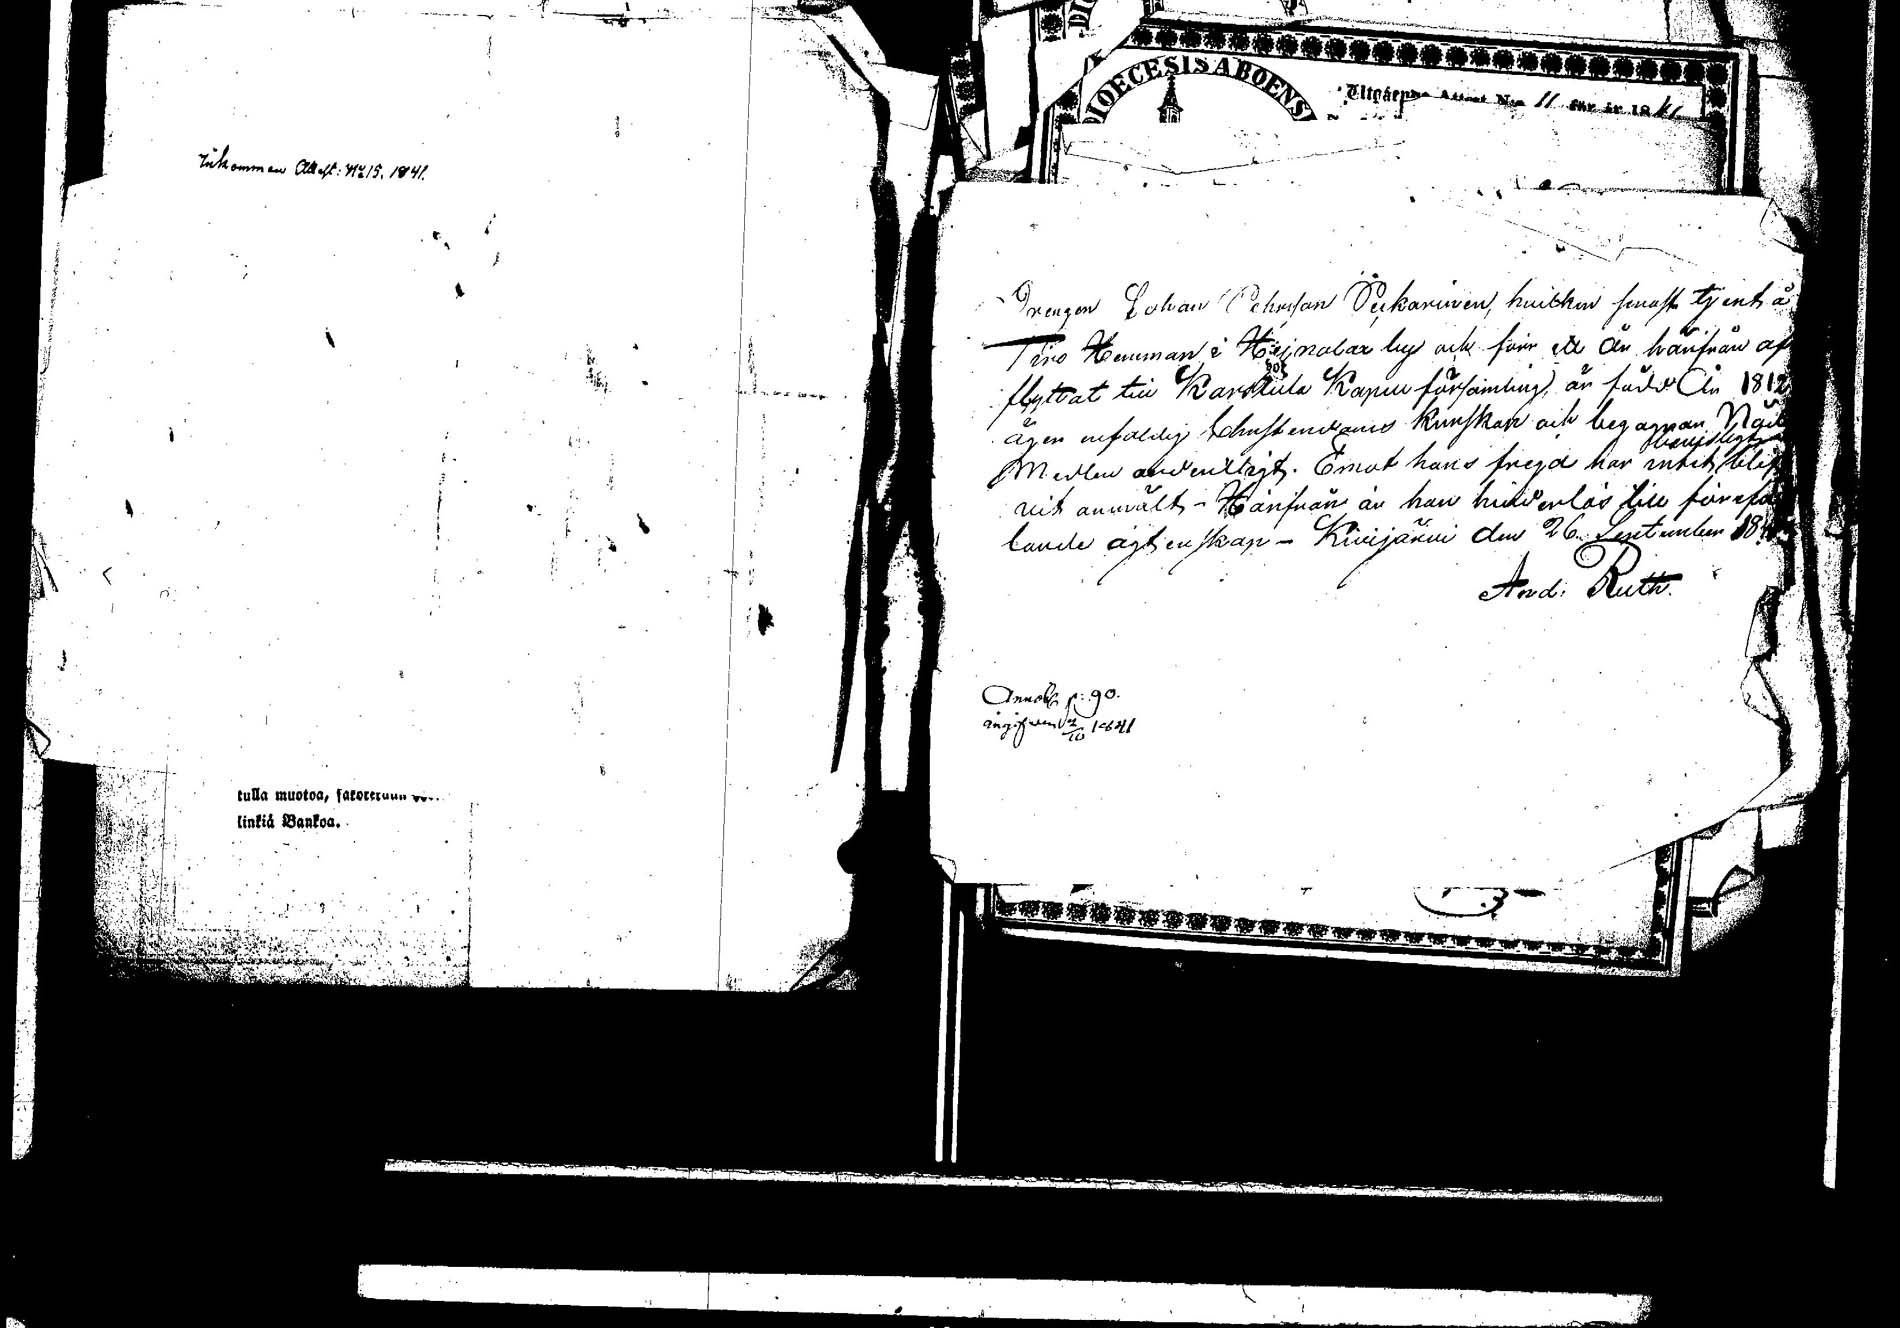 Inkommen Attest: No 15. 1841.
tulla muotoa,
linkiä Bankoa.
DIOECESIS ABOENS
Utgående Attest N:o 11 för år 1841
Drengen Johan Pehrsson Peckarinen, hvilken senast tjent å
Tiro Hemman i Hejnolax by och förr ett År härifrån af
flyttat till Karstula Kapell församling, är född År 1812
äger enfaldig Christendoms kunskap och begagnar Nåd
Medlen ordentligt. Emot hans frejd har intet blif
vit anmält – Härifrån är han hinderlös till föreståen
lande ägtenskap – Kivijärvi den 26 September 1841
And: Ruth.
Annot: p: 90.
ingifven 2/10 1841